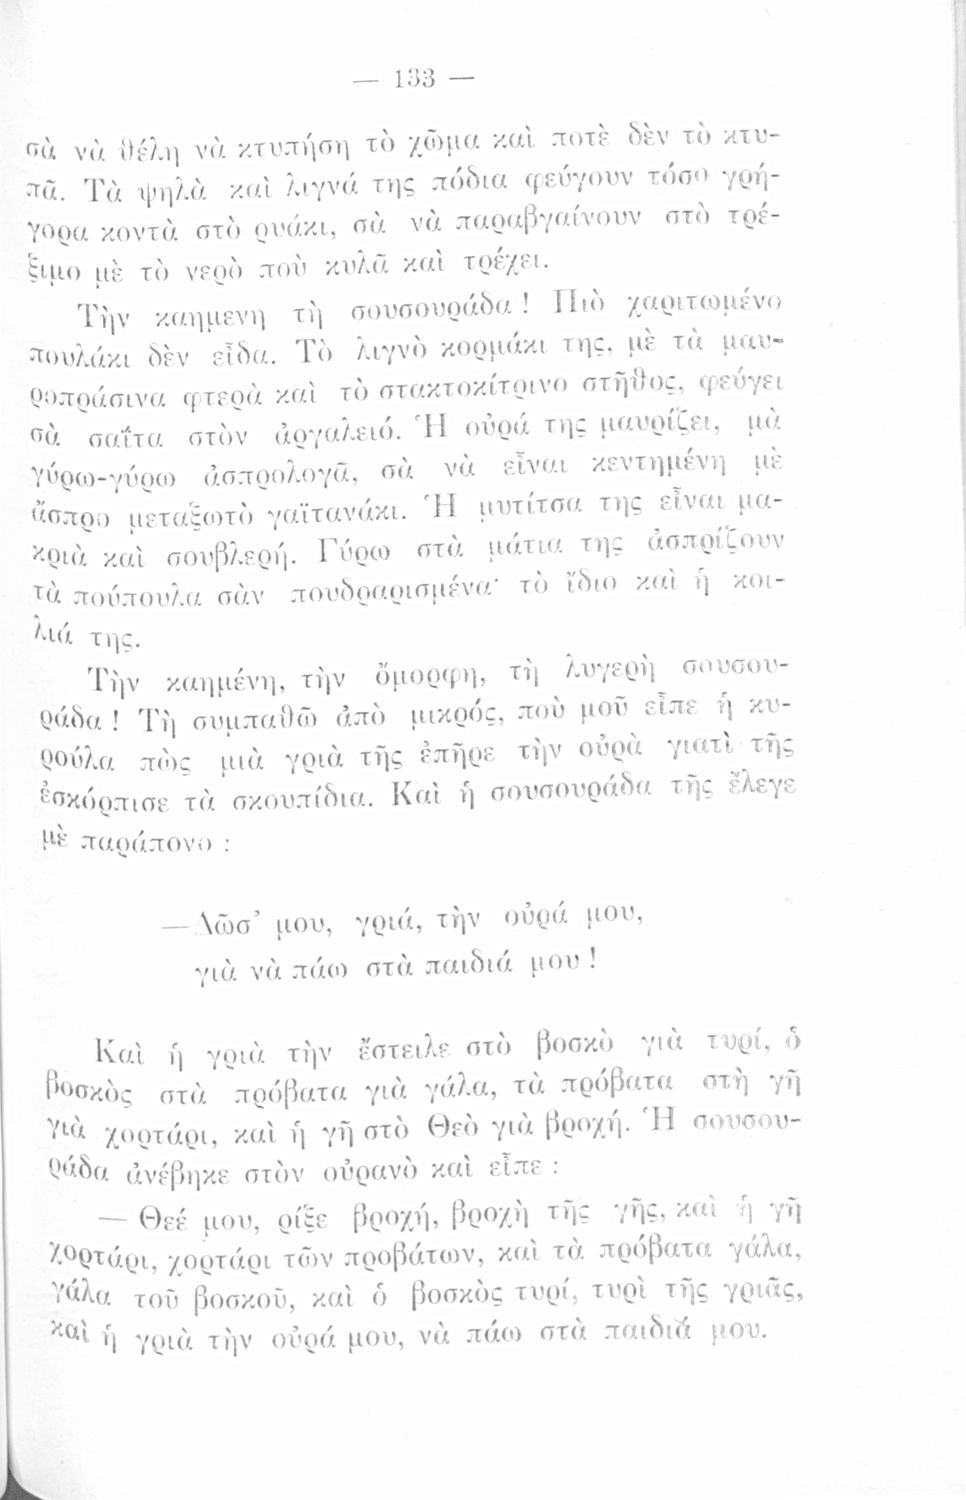 — 133 —
σὰ νὰ θέλη νὰ κτυπήση τὸ χῶμα καὶ ποτὲ δὲν τὸ κτυ-
πᾶ. Τὰ ψηλὰ καὶ λιγνά της πόδια φεύγουν τόσο γρή-
γορα κοντὰ στὸ ρυάκι, σὰ νὰ παραβγαίνουν στὸ τρέ-
ξιμο μὲ τὸ νερὸ ποὺ κυλᾶ καὶ τρέχει.
Τὴν καημενη τὴ σουσουράδα! Πιὸ χαριτωμένο
πουλάκι δὲν εἶδα. Τὸ λιγνὸ κορμάκι της, μὲ τὰ μαυ-
ροπράσινα φτερὰ καὶ τὸ στακτοκίτρινο στῆθος, φεύγει
σὰ σαΐτα στὸν ἀργαλειό. Ἡ οὐρά της μαυρίζει, μὰ
γύρω-γύρω ἀσπρολογᾶ, σὰ νὰ εἶναι κεντημένη μὲ
ἄσπρο μεταξωτὸ γαϊτανάκι. Ἡ μυτίτσα της εἶναι μα-
κριὰ καὶ σουβλερή. Γύρω στὰ μάτια της ἀσπρίζουν
τὰ πούπουλα σὰν πουδραρισμένα· τὸ ἴδιο καὶ ἡ κοι-
λιά της.
Τὴν καημένη, τὴν ὄμορφη, τὴ λυγερὴ σουσου-
ράδα! Τὴ συμπαθῶ ἀπὸ μικρός, ποὺ μοῦ εἶπε ἡ κυ-
ρούλα πὼς μιὰ γριὰ τῆς ἐπῆρε τὴν οὐρὰ γιατὶ τῆς
ἐσκόρπισε τὰ σκουπίδια. Καὶ ἡ σουσουράδα τῆς ἔλεγε
μὲ παράπονο :
— Δῶσ' μου, γριά, τὴν οὐρά μου,
γιὰ νὰ πάω στὰ παιδιά μου!
Καὶ ἡ γριὰ τὴν ἔστειλε στὸ βοσκὸ γιὰ τυρί, ὁ
βοσκὸς στὰ πρόβατα γιὰ γάλα, τὰ πρόβατα στὴ γῆ
γιὰ χορτάρι, καὶ ἡ γῆ στὸ Θεὸ γιὰ βροχή. Ἡ σουσου-
ράδα ἀνέβηκε στὸν οὐρανὸ καὶ εἶπε :
— Θεέ μου, ρίξε βροχή, βροχὴ τῆς γῆς, καὶ ἡ γῆ
χορτάρι, χορτάρι τῶν προβάτων, καὶ τὰ πρόβατα γάλα,
γάλα τοῦ βοσκοῦ, καὶ ὁ βοσκὸς τυρί, τυρὶ τῆς γριᾶς,
καὶ ἡ γριὰ τὴν οὐρά μου, νὰ πάω στὰ παιδιά μου.